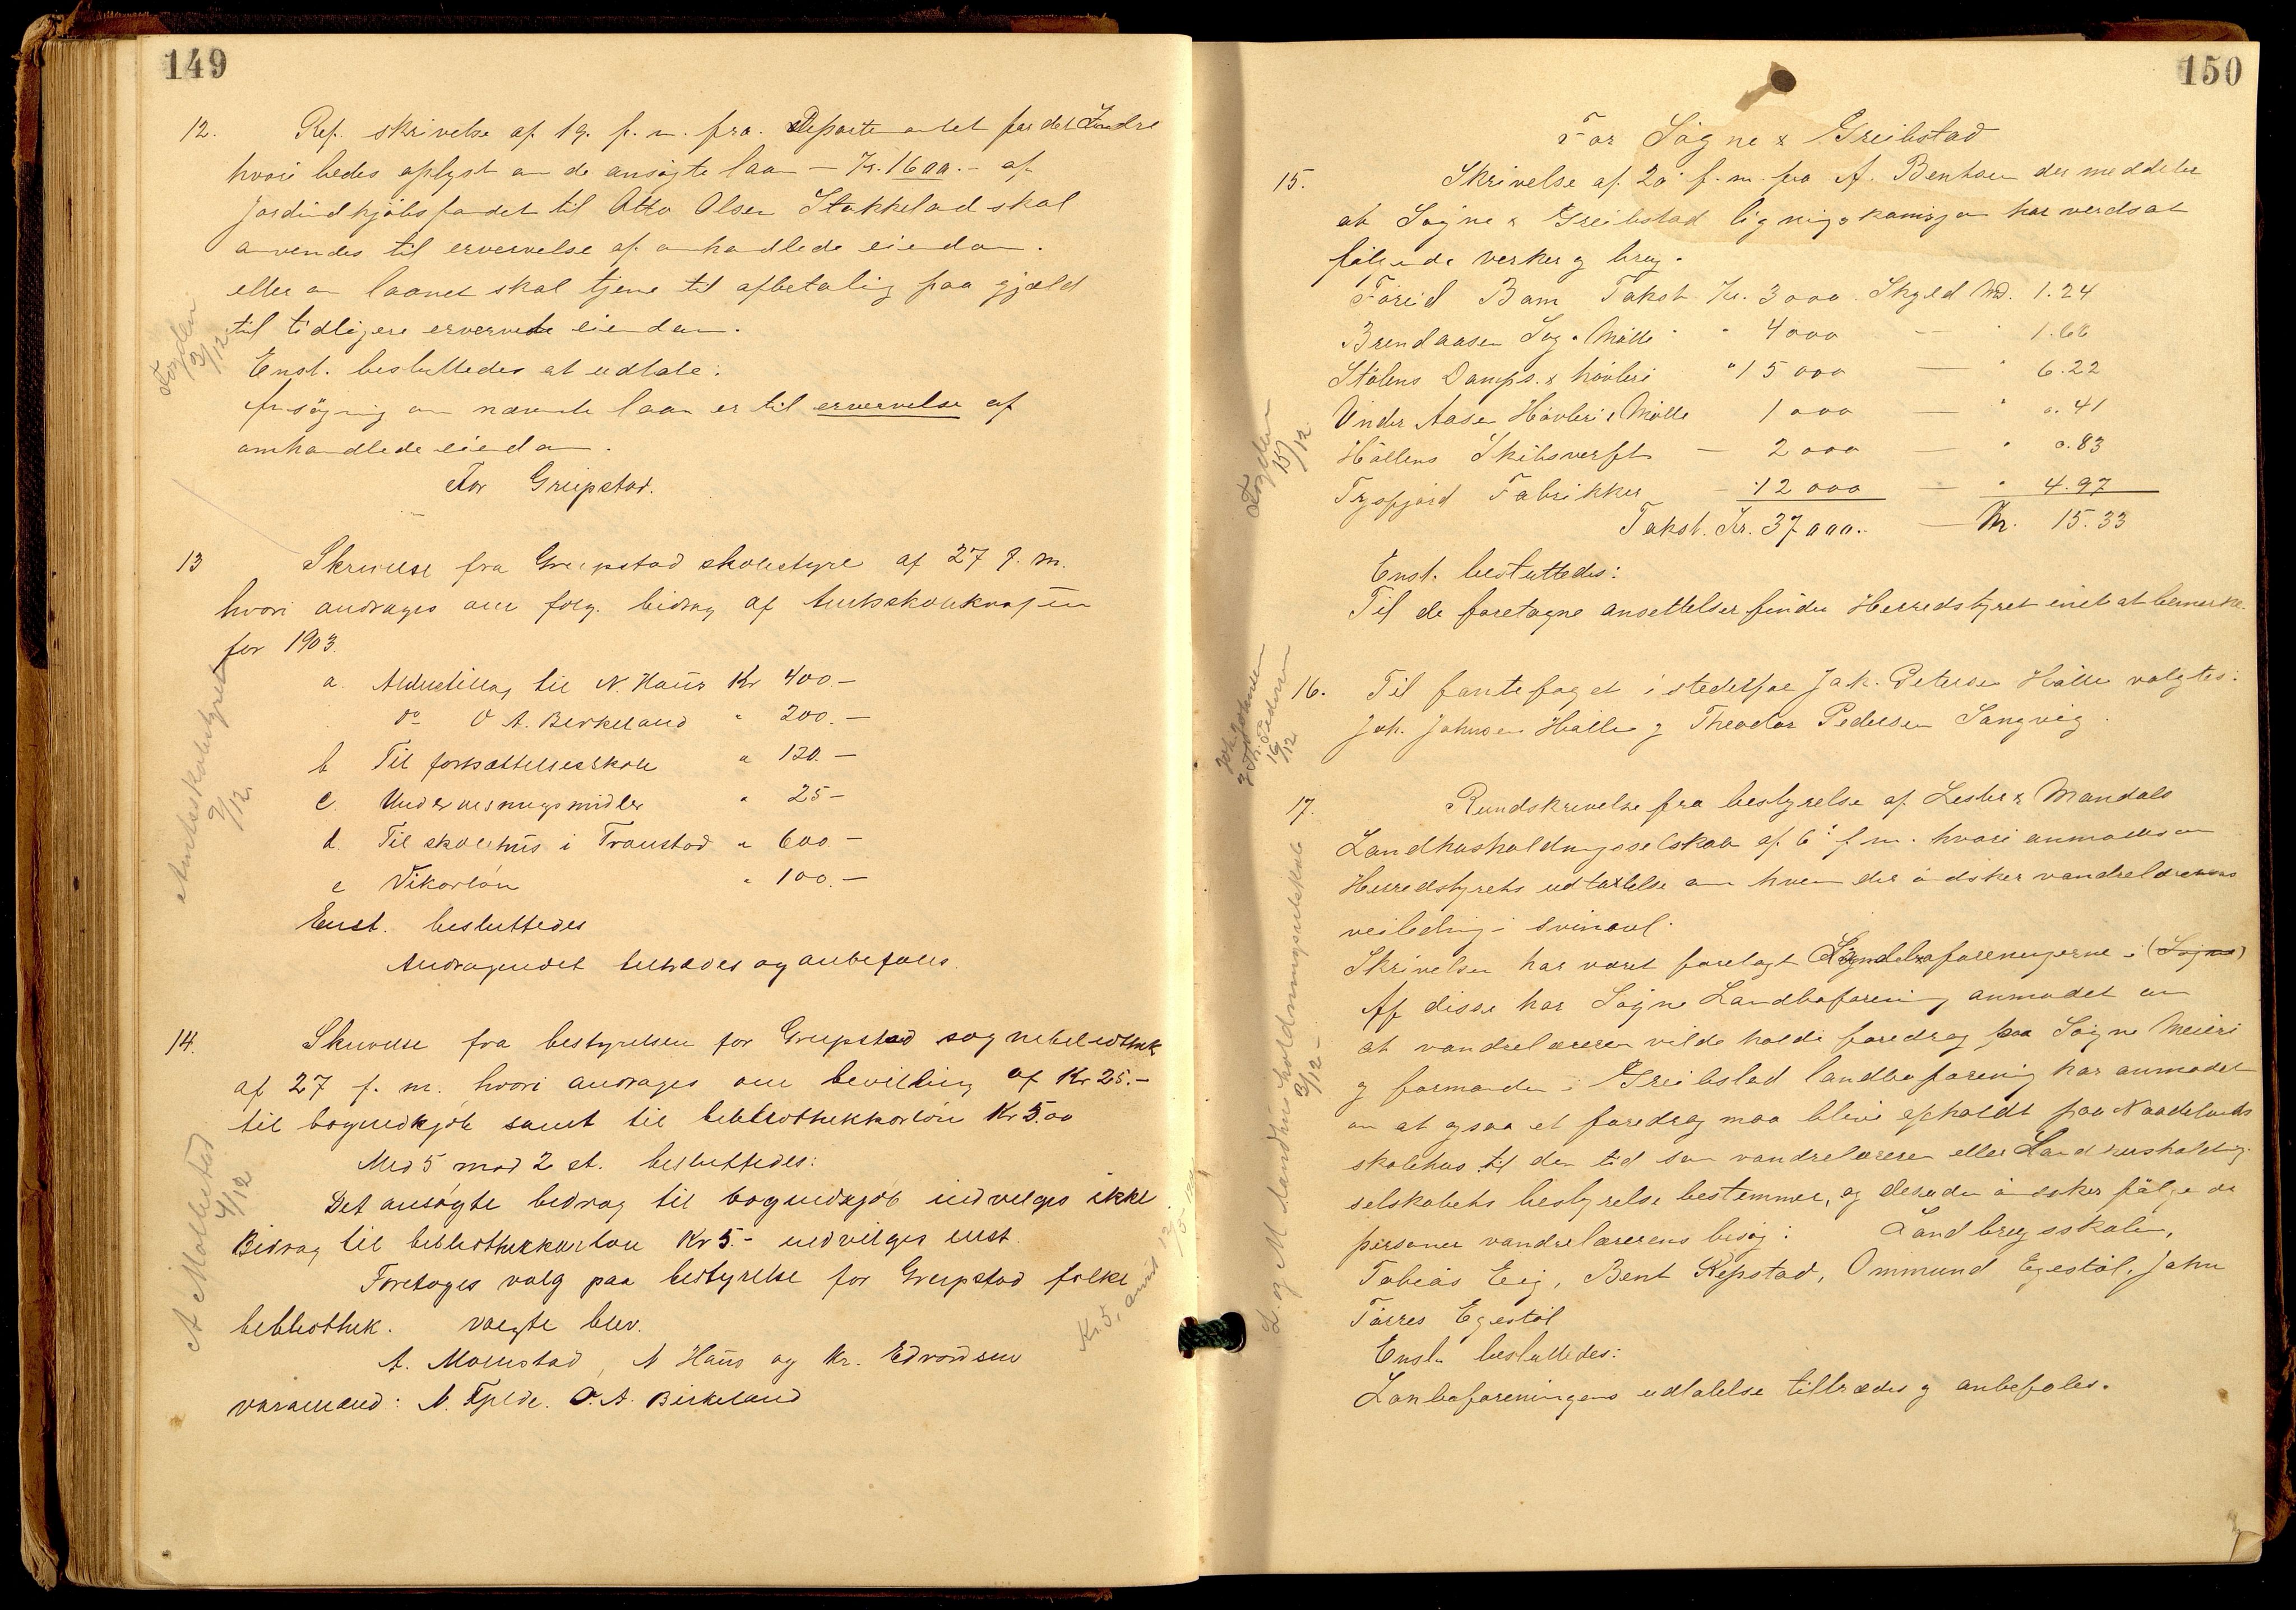 149
12. Ref. skrivelse af 19. f. m. fra Departementet for det Indre
hvori bedes oplyst om de ansøgte laan – Kr. 1600.- af
jordindkjøbsfondet til Otto Olsen Stokkeland skal
anvendes til ervervelse af omhandlede eiendom.
eller om laanet skal tjene til afbetaling paa gjæld
til tidligere ervervede eiendom.
Enst. besluttedes at udtale:
Ansøgning om nævnte laan er til ervervelse af
omhandlede eiendom.
For Greipstad.
Fogden
3/12
13 Skrivelse fra Greipstad skolestyre af 27 f. m.
hvori andrages om følg. bidrag af Amtsskolekassen
for 1903.
a. Alderstillæg til N. Haus Kr 400 –
do O A. Birkeland " 200. –
b Til fortsættelsesskole " 120. –
c. Undervisningsmidler " 25 –
d. Til skolehus i Traustad " 600 –
e Vikarløn " 100. –
Enst. besluttedes
Andragendet tiltrædes og anbefales.
Amtsskolestyret
2/12.
14. Skrivelse fra bestyrelsen for Greipstad sognebibliothek
af 27 f. m. hvori andrages om bevilling af Kr 25.–
til bogindkjøb samt til bibliothekkarløn Kr 5.00
Med 5 mod 2 st. besluttedes:
Det ansøgte bidrag til bogindkjøb indvilges ikke
Bidrag til bibliothekkarløn Kr 5.– indvilges enst.
Foretoges valg paa bestyrelse for Greipstad folke
bibliothek. Valgte blev.
A. Molnestad, N Haus og Kr. Edvardsen
varamænd: N. Fjelde. O. A. Birkeland
4/12
Kr. 5, anvist 12/5
150
For Søgne & Greibstad
15. Skrivelse af 20 f. m. fra A. Bentsen der meddeler
at Søgne & Greibstad ligningskomisjon har verdsat
følgende verker og brug.
Takst Kr. 3000 Skyld M. 1.24
Brendaasen Sag & Mølle " " 4000 — " 1.66
Stølens Damps. & høvleri " 15000 — " 6.22
Under Aasen Høvleri & Mølle 1000 — " 0.41
Høllens Skibsverft — 2000 — " 0.83
Trysfjord Fabrikker — 12000 — " 4.97
Takst. Kr. 37000.- — M. 15.33
Enst. besluttedes:
Til de foretagne ansettelser finder Herredstyret intet at bemerke.
Fogden
15/12
16. Til fantefoged i stedetfor Jak. Petersen Hølle valgtes:
Joh. Johnsen Hølle og Theodor Pedersen Langvig.
Joh. Johnsen
& Th. Pedersen
16/12
17. Rundskrivelse fra bestyrelse af Lister & Mandals
Landhusholdningsselskab af 6 f. m. hvori anmodes om
Herredstyrets udtalelse om hvem der ønsker vandrelærerens
veiledning i svineavl.
Skrivelsen har været forelagt Landboforeningerne i (Søgne)
Af disse har Søgne Landboforening anmodet om
at vandrelæreren vilde holde foredrag paa Søgne Meieri
og formanden i Greibstad landboforening har anmodet
om at ogsaa et foredrag maa blive afholdt paa Naadelands
skolehus til den tid som vandrelæreren eller Landhusholdnings
selskabets bestyrelse bestemmer, og desuden ønsker følgende
personer vandrelærerens besøg: Landbrugsskolen,
Tobias Eeg, Bent Repstad, Ommund Egestøl, John
Tørres Egestøl
Enst. besluttedes:
Lanboforeningens udtalelse tiltrædes og anbefales.
L. og M Landhusholdningsselskab
3/12 –